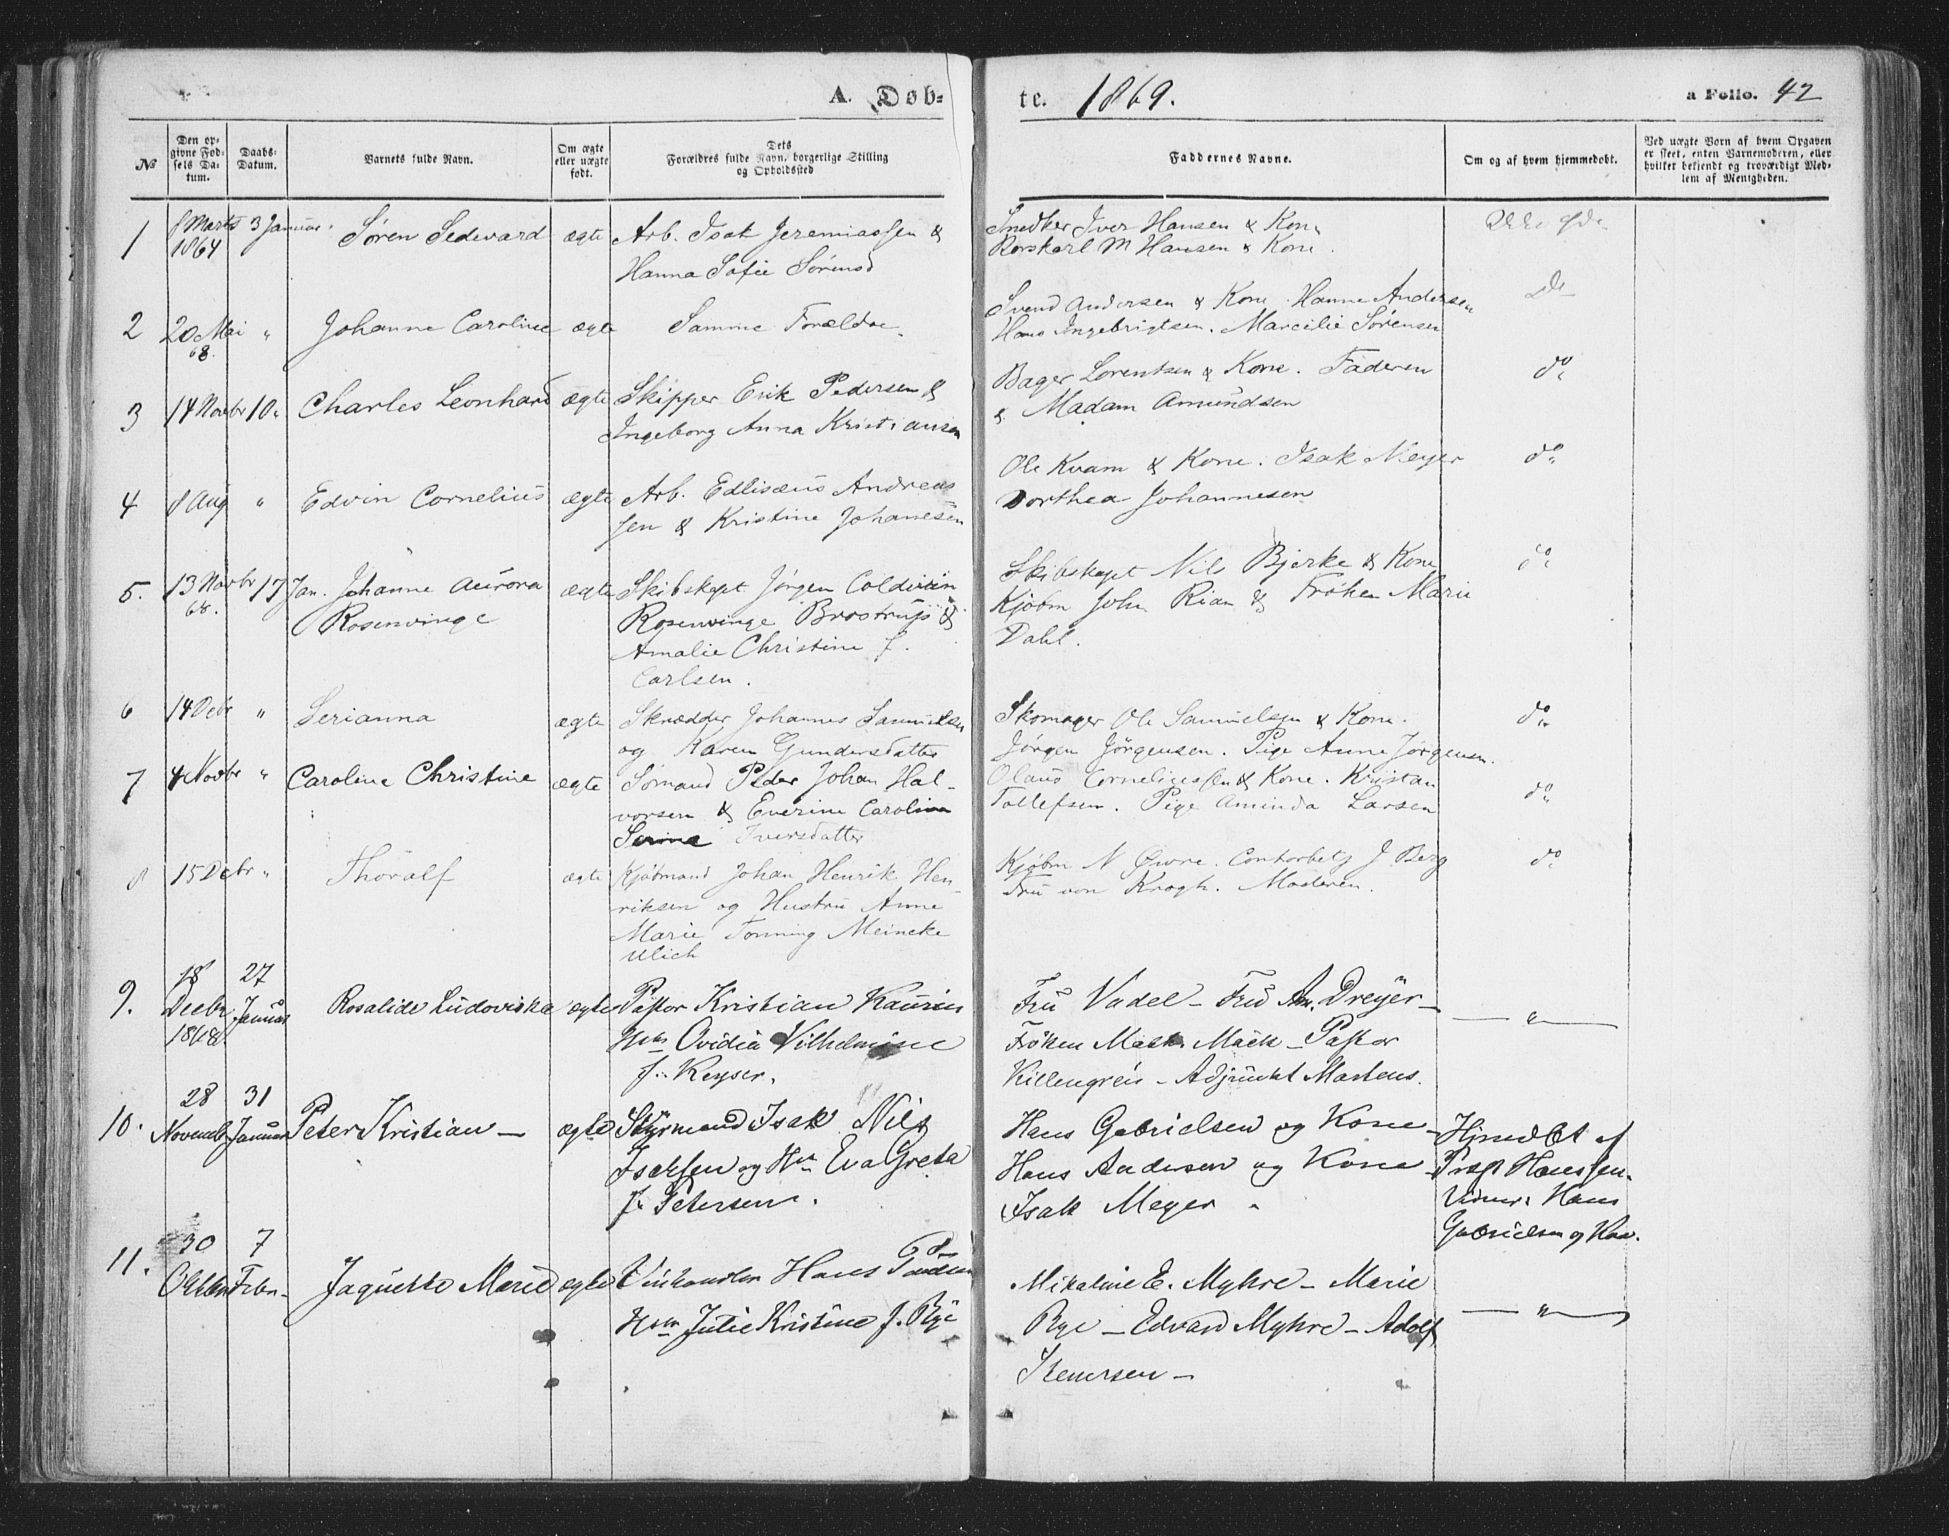 A. Døb-
te. 1869.
a Folio. 42
№
Den op-
givne Fød-
sels Da-
tum.
Daabs-
Datum.
Barnets fulde Navn.
Om ægte
eller uægte
født.
Dets
Forældres fulde Navn, borgerlige Stilling
og Opholdssted
Faddernes Navne.
Om og af hvem hjemmedøbt.
Ved uægte Børn af hvem Opgaven
er skeet, enten Barnemoderen, eller
hvilket bekjendt og troværdigt Med-
lem af Menigheden.
1
8 Marts
1864
3 Januar
Søren Sedevard
ægte
Arb. Isak Jeremiassen &
Hanna Sofie Sørensd
Snedker Iver Hansen & Kone
M Hansen & Kone
2
20 Mai
68.
"
Johanne Caroline
ægte
Samme Forældre
Svend Andersen & Kone. Hanne Andersen
Hans Ingebrigtsen. Marcilie Sørensen
Do
3
14 Novbr
10
Charles Leonhard
ægte
Skipper Erik Pedersen &
Ingeborg Anna Kristiansen
Bager Lorentsen & Kone. Faderen
& Madam Amundsen
do
4
8 Aug
"
Edvin Cornelius
ægte
Arb. Edlisæus Andreas
sen & Kristine Johanesen
Ole Kvam & Kone. Isak Meyer
Dorthea Johannesen
do
5.
13 Novbr
68.
17 Jan.
Johanne Aurora
Rosenvinge
ægte
Skibskapt Jørgen Coldevin
Rosenvinge Brostrup &
Amalie Christine f.
Carlsen.
Skibskapt Nils Bjerke & Kone
Kjøbm John Rian & Frøken Marie
Dahl.
do
6
14 Debr
"
Serianna
ægte
Skrædder Johannes Samuelsen
og Karen Gundersdatter
Skomager Ole Samuelsen & Kone.
Jørgen Jørgensen. Pige Anne Jørgensen.
do
7
4 Novbr
"
Caroline Christine
ægte
Sømand Peder Johan Hal-
vorsen & Everine Carolina
Serine Iversdatter
Olaus Corneliussen & Kone. Kristian
Tollefsen. Pige Aminda Larsen
do
8
15 Debr
"
Thoralf
ægte
Kjøbmand Johan Henrik Hen-
riksen og Hustru Anne
Marie Tonning Meincke
Ulich
Kjøbm N Øwre. Contorbetj J. Berg
Fru von Krogh. Moderen.
do
9.
18
Decbr
1868
27
Januar
Rosalide Ludoviska
ægte
Pastor Kristian Kaurin
Hus Ovidia Vilhelmine
f. Keyser.
Fru Vadel - Fru Am. Dreyer -
Frøken Mack - Pastor
Killengreis - Adjunkt Martens.
— " —
10.
28
Novemb
31
Januar
Peter Kristian —
ægte
Styrmand Isak Nils
Isaksen og Hu Eva Greta
f. Petersen.
Hans Gabrielsen og Kone -
Hans Andersen og Kone -
Isak Meyer -
Hjmdbt af
Præst Hanssen.
Vidner: Hans
Gabrielsen og Kone.
11.
30
Oktbr
7
Febr -
Jaquette Marie
ægte
Vinhandler Hans
Hus Julie Kristine f. Rye
Mikaline E. Myhre - Marie
Rye - Edvard Myhre - Adolf
— " —